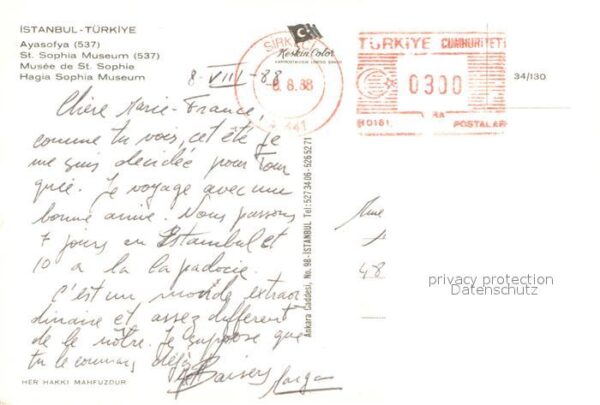 İSTANBUL-TÜRKİYE
Ayasofya (537)
St. Sophia Museum (537)
Musée de St. Sophie
Hagia Sophia Museum
8-VIII-88
Chère Marie-France,
comme tu vois, cet été je
me suis décidée pour Tour
quie. Je voyage avec une
bonne amie. Nous passons
7 jours en Istambul et
10 a la Capadocie.
C'est un monde extraor
dinaire et assez different
de le nôtre. Je suppose que
tu le connais déjà
Baisers
HER HAKKI MAHFUZDUR
Keskin Color
Ankara Caddesi, No. 98-İSTANBUL Tel: 5273406-5265271
SİRKECİ
8.8.88
TÜRKİYE CUMHURİYETİ
0300
POSTALARI
34/130
48
privacy protection
Datenschutz